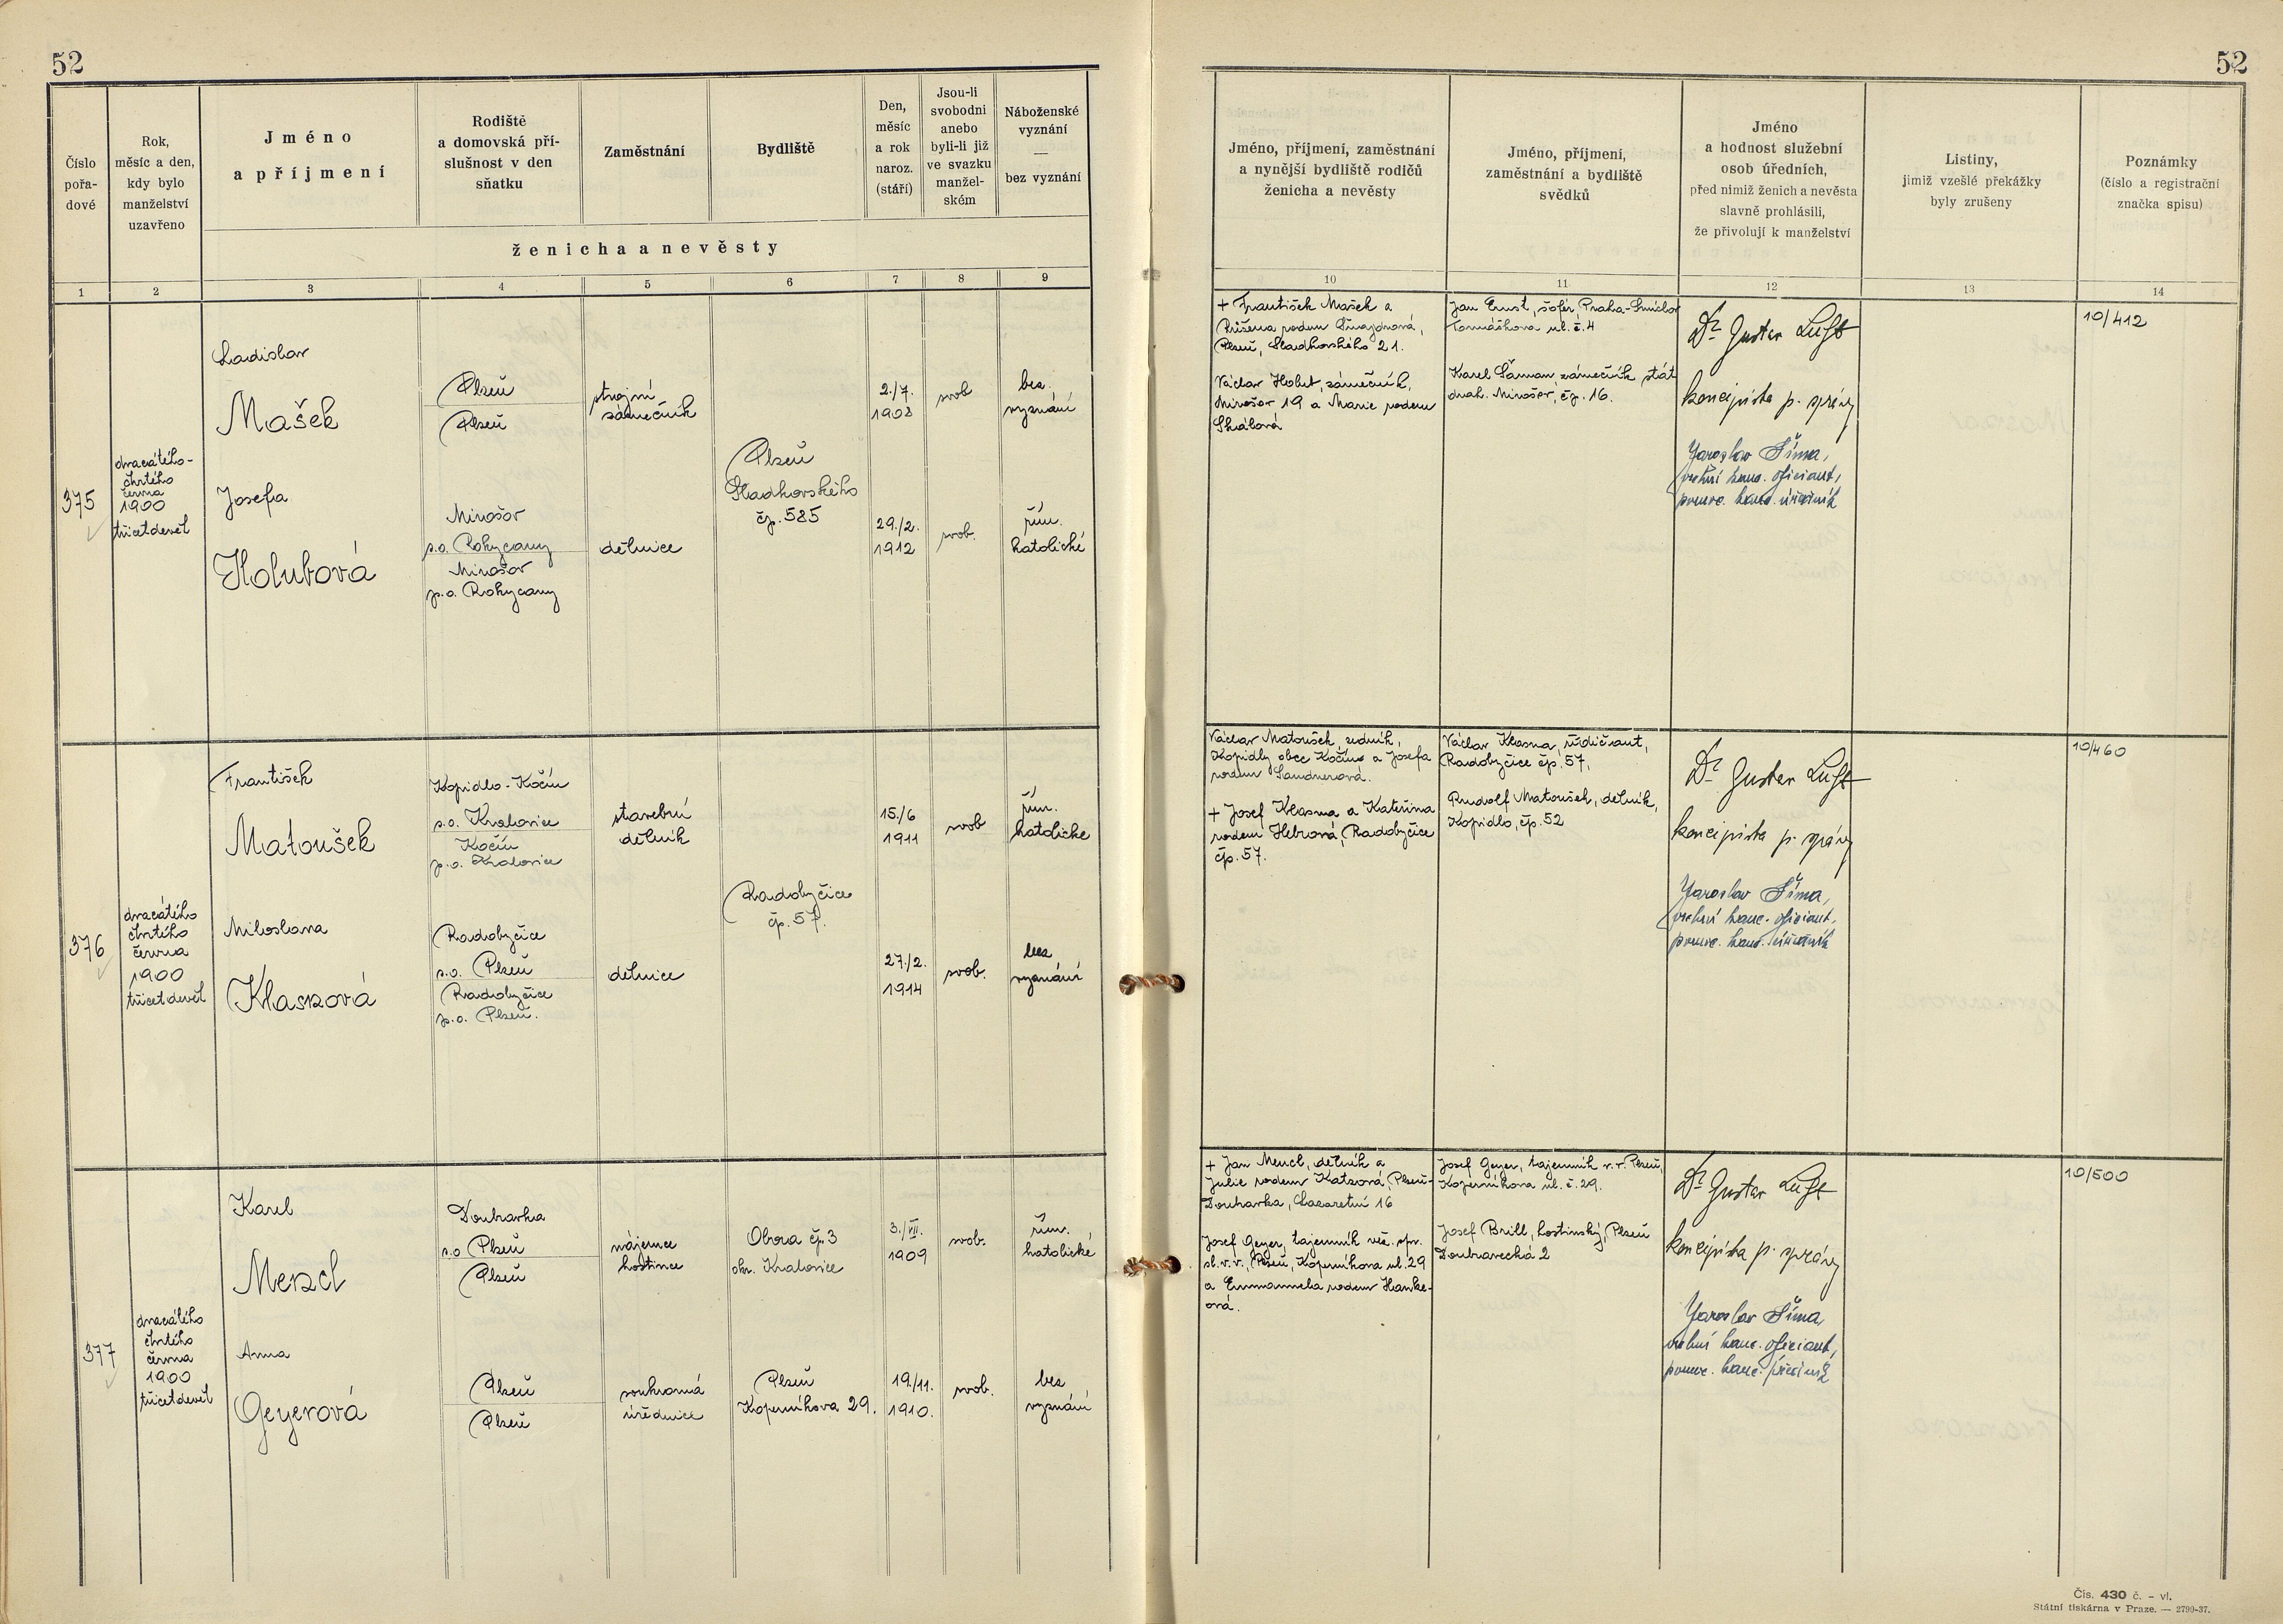 52
52
Číslo
pořa-
dové
Rok,
měsíc a den,
kdy bylo
manželství
uzavřeno
Jméno
a příjmení
Rodiště
a domovská pří-
slušnost v den
sňatku
Zaměstnání
Bydliště
Den,
měsíc
a rok
naroz.
(stáří)
Jsou-li
svobodni
anebo
byli-li již
ve svazku
manžel-
ském
Náboženské
vyznání
—
bez vyznání
ženicha a nevěsty
Jméno, příjmení, zaměstnání
a nynější bydliště rodičů
ženicha a nevěsty
Jméno, příjmení,
zaměstnání a bydliště
svědků
Jméno
a hodnost služební
osob úředních,
před nimiž ženich a nevěsta
slavně prohlásili,
že přivolují k manželství
Listiny,
jimiž vzešlé překážky
byly zrušeny
Poznámky
(číslo a registrační
značka spisu)
1 2 3 4 5 6 7 8 9 10 11 12 13 14
375
dvacátého-
čtvrtého
června
1900
třicetdevět
Ladislav
Mašek
Plzeň
Plzeň
strojní
zámečník
2./7.
1908
svob
bez.
vyznání
Plzeň
Sladkovského
čp. 585
Josefa
Holubová
Mirošov
s.o. Rokycany
Mirošov
p.o. Rokycany
dělnice
29./2.
1912
svob.
řím.
katolické
+ František Mašek a
Růžena rodem
Plzeň, Sladkovského 21.
Václav Holub, zámečník,
Mirošov 19 a Marie rodem
Skálová
Jan Ernst, šofér, Praha-Smíchov
ul. č. 4
Karel zámečník stát.
drah. Mirošov, čp. 16.
Dr Gustav Luft
koncipista p. správy
Jaroslav Šíma,
vrchní kanc. oficiant,
pomoc. kanc. úředník
10/412
376
dvacátého
čtvrtého
června
1900
třicetdevět
František
Matoušek
Kopidlo - Kočín
s.o. Kralovice
Kočín
p.o. Kralovice
stavební
dělník
15./6
1911
svob
řím.
katolické
Radobyčice
čp. 57.
Miloslava
Klasnová
Radobyčice
s.o. Plzeň
Radobyčice
p.o. Plzeň.
dělnice
27./2.
1914
svob.
bez
vyznání
Václav Matoušek, zedník,
Kopidly obce Kočína a Josefa
rodem Sandnerová.
+ Josef Klasna a Kateřina
rodem Hebrová, Radobyčice
čp. 57.
Václav Klasna,
Radobyčice čp. 57.
Rudolf Matoušek, dělník,
Kopidlo, čp. 52
Dr Gustav Luft
koncipista p. správy
Jaroslav Šíma,
vrchní kanc. oficiant,
pomoc. kanc. úředník
10/460
377
dvacátého
čtvrtého
června
1900
třicetdevět
Karel
Mencl
Doubravka
s.o Plzeň
Plzeň
nájemce
hostince
Obora čp. 3
okr. Kralovice
3./VII.
1909
svob.
řím.
katolické
Anna
Geyerová
Plzeň
Plzeň
soukromá
úřednice
Plzeň
Koperníkova 29.
19./11.
1910.
svob.
bez
vyznání
+ Jan Mencl, dělník a
Julie rodem Katzová, Plzeň-
Doubravka, Lazaretní 16
Josef Geyer, tajemník věz. spr.
sl. v. v., Plzeň, Koperníkova ul. 29
a Emmanuela rodem Hanke-
ová.
Josef Geyer, tajemník v. v. Plzeň,
Koperníkova ul. č. 29.
Josef Brill, hostinský, Plzeň
Doubravecká 2
Dr Gustav Luft
koncipista p. správy
Jaroslav Šíma
vrchní kanc. oficiant,
pomoc. kanc. úředník
10/500
Čís. 430 č. - vl.
Státní tiskárna v Praze. — 2790-37.